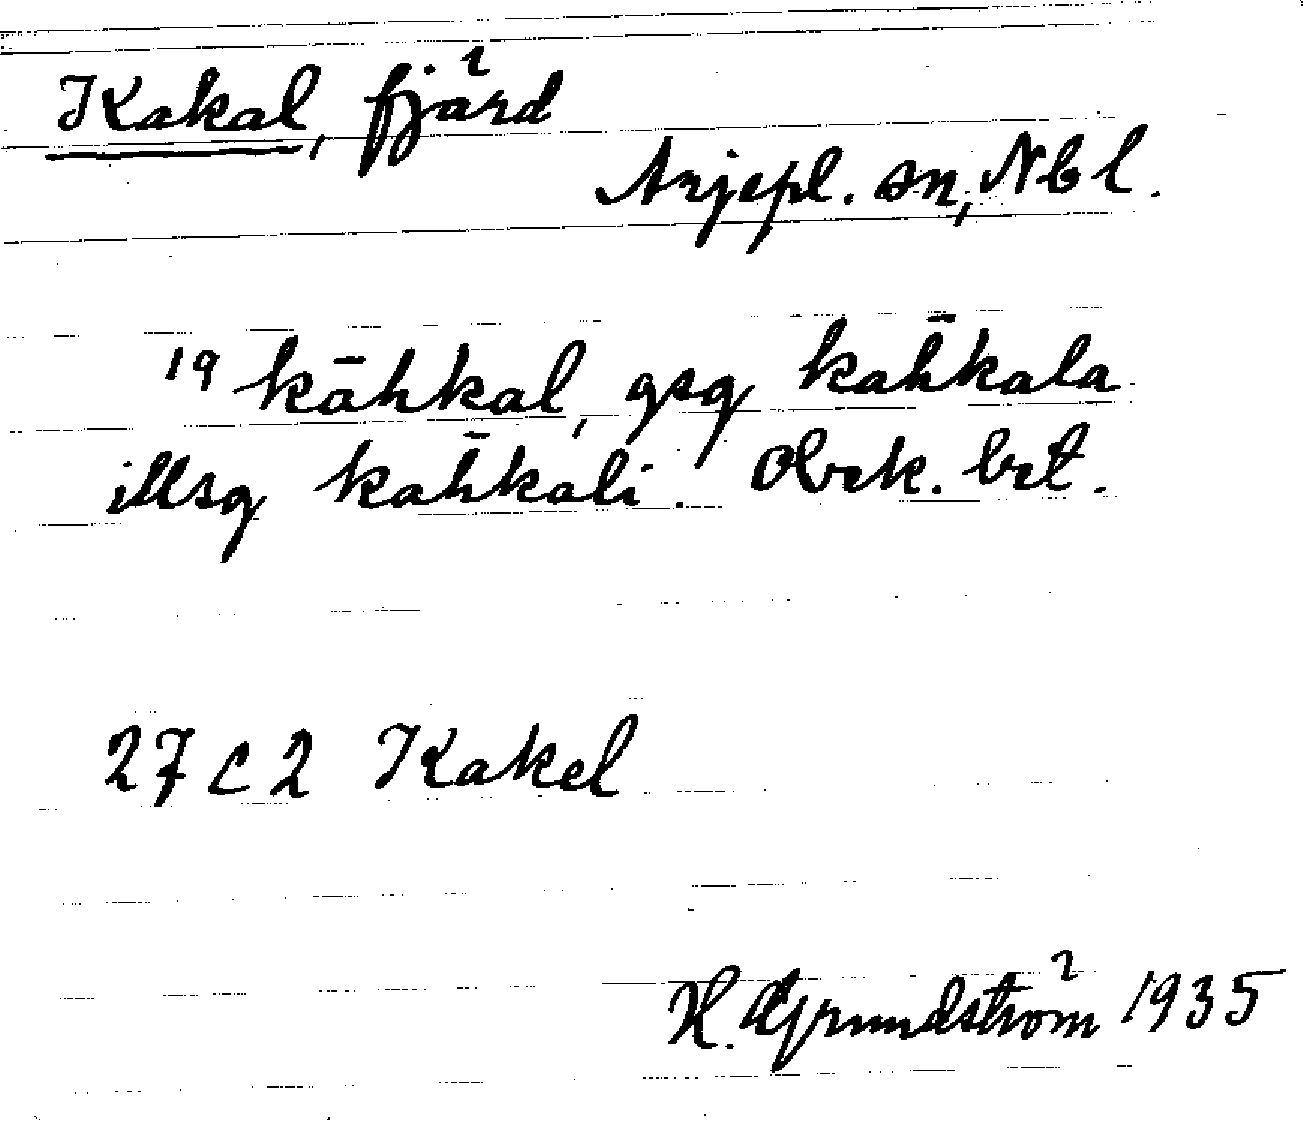 Kakal, fjärd
Arjepl. sn, Nbl.
19 kāhkal, gsg kah̄kala
illsg kah̄kali. Obek. bet.
27 c 2 Kakel
H. Grundström 1935